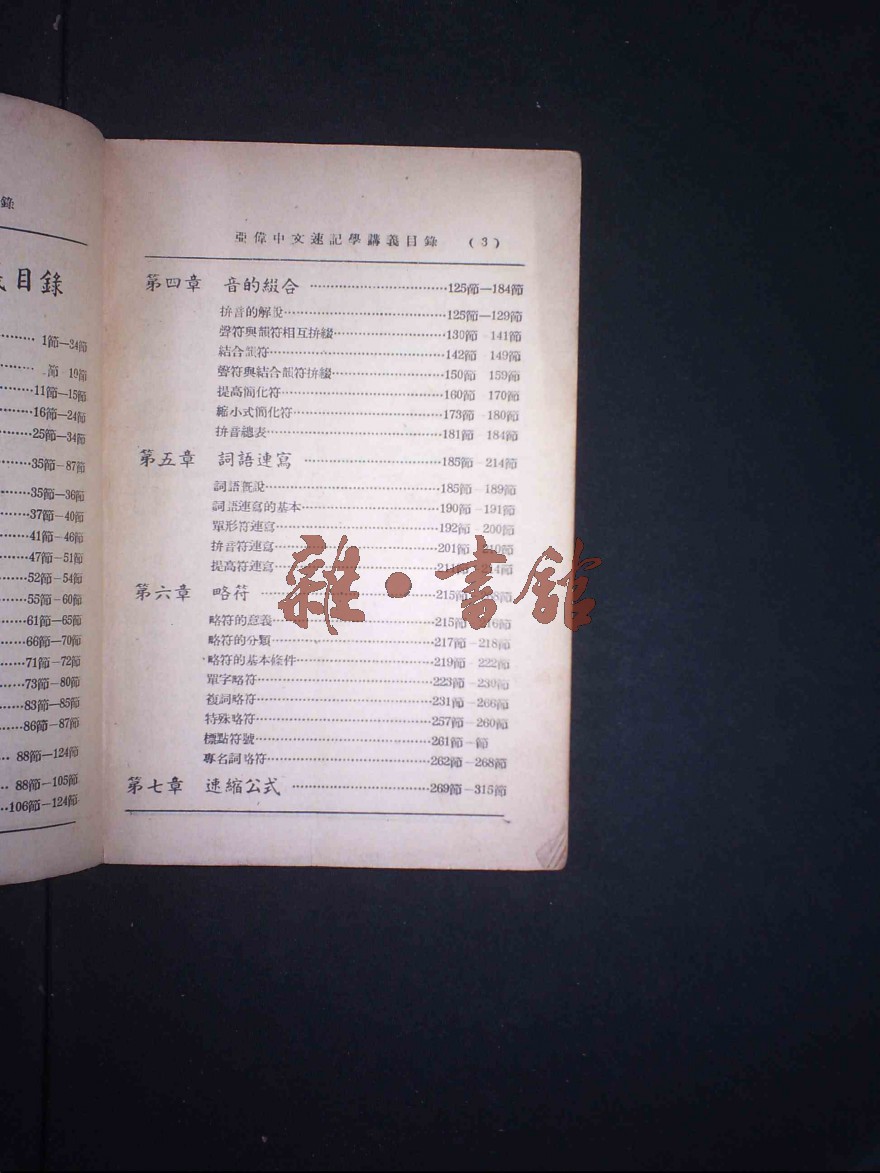 錄
目錄
1節—34節
節—10節
11節—15節
16節—24節
25節—34節
35節—87節
35節—36節
37節—40節
41節—46節
47節—51節
52節—54節
55節—60節
61節—65節
66節—70節
71節—72節
73節—80節
83節—85節
86節—87節
88節—124節
88節—105節
106節—124節
亞偉中文速記學講義目錄 (3)
第四章 音的綴合 125節—184節
拼音的解說 125節—129節
聲符與韻符相互拼綴 130節—141節
結合韻符 142節—149節
聲符與結合韻符拼綴 150節—159節
提高簡化符 160節—170節
縮小式簡化符 173節—180節
拼音總表 181節—184節
第五章 詞語連寫 185節—214節
詞語概說 185節—189節
詞語連寫的基本 190節—191節
單形符連寫 192節—200節
拼音符連寫 201節—210節
提高符連寫 211節—214節
第六章 略符 215節—268節
略符的意義 215節—216節
略符的分類 217節—218節
略符的基本條件 219節—222節
單字略符 223節—230節
複詞略符 231節—266節
特殊略符 257節—260節
標點符號 261節—節
專名詞略符 262節—268節
第七章 速縮公式 269節—315節
雜·書館